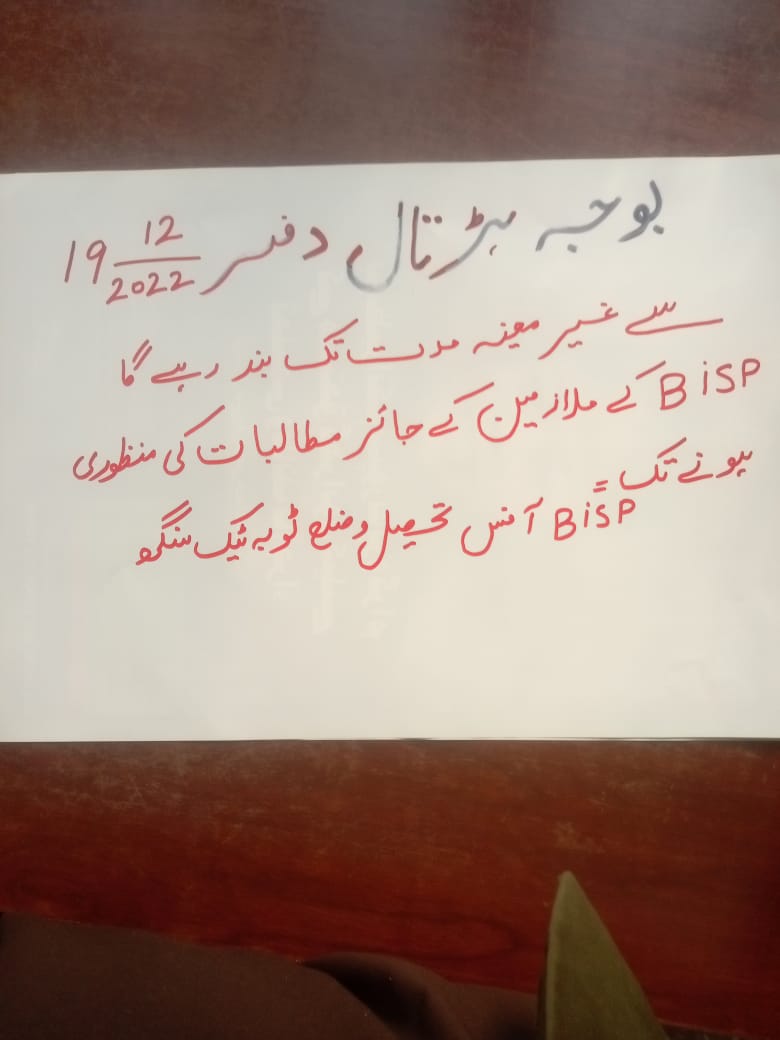 بوجہ ہڑتال دفتر 19 12/2022
سے غیر معینہ مدت تک بند رہے گا
BiSP کے ملازمین کے جائز مطالبات کی منظوری
ہونے تک =
BiSP آفس تحصیل و ضلع ٹوبہ ٹیک سنگھ